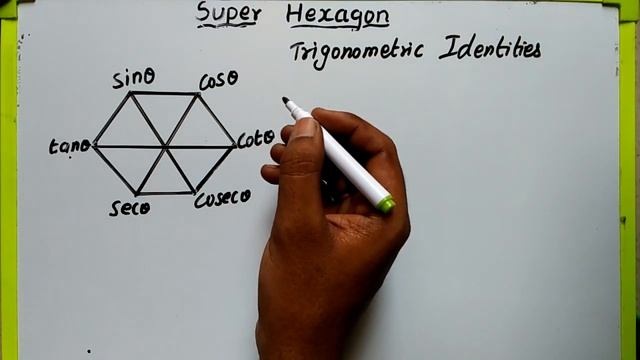 Super Hexagon
Trigonometric Identities
sinθ cosθ
tanθ cotθ
secθ cosecθ